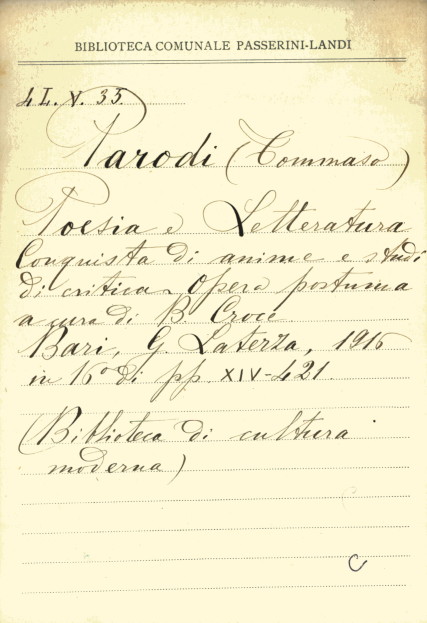 BIBLIOTECA COMUNALE PASSERINI-LANDI
4 L. V. 35.
Parodi (Tommaso)
Poesia e Letteratura
Conquista di anime e studi
di critica - Opera postuma
a cura di B. Croce
Bari, G. Laterza, 1916
in 16° di pp XIV-421.
(Biblioteca di cultura
moderna)
C